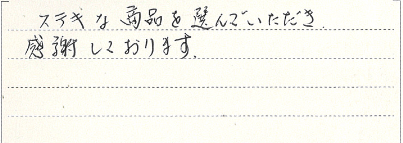 ステキな商品を選んでいただき、
感謝しております。